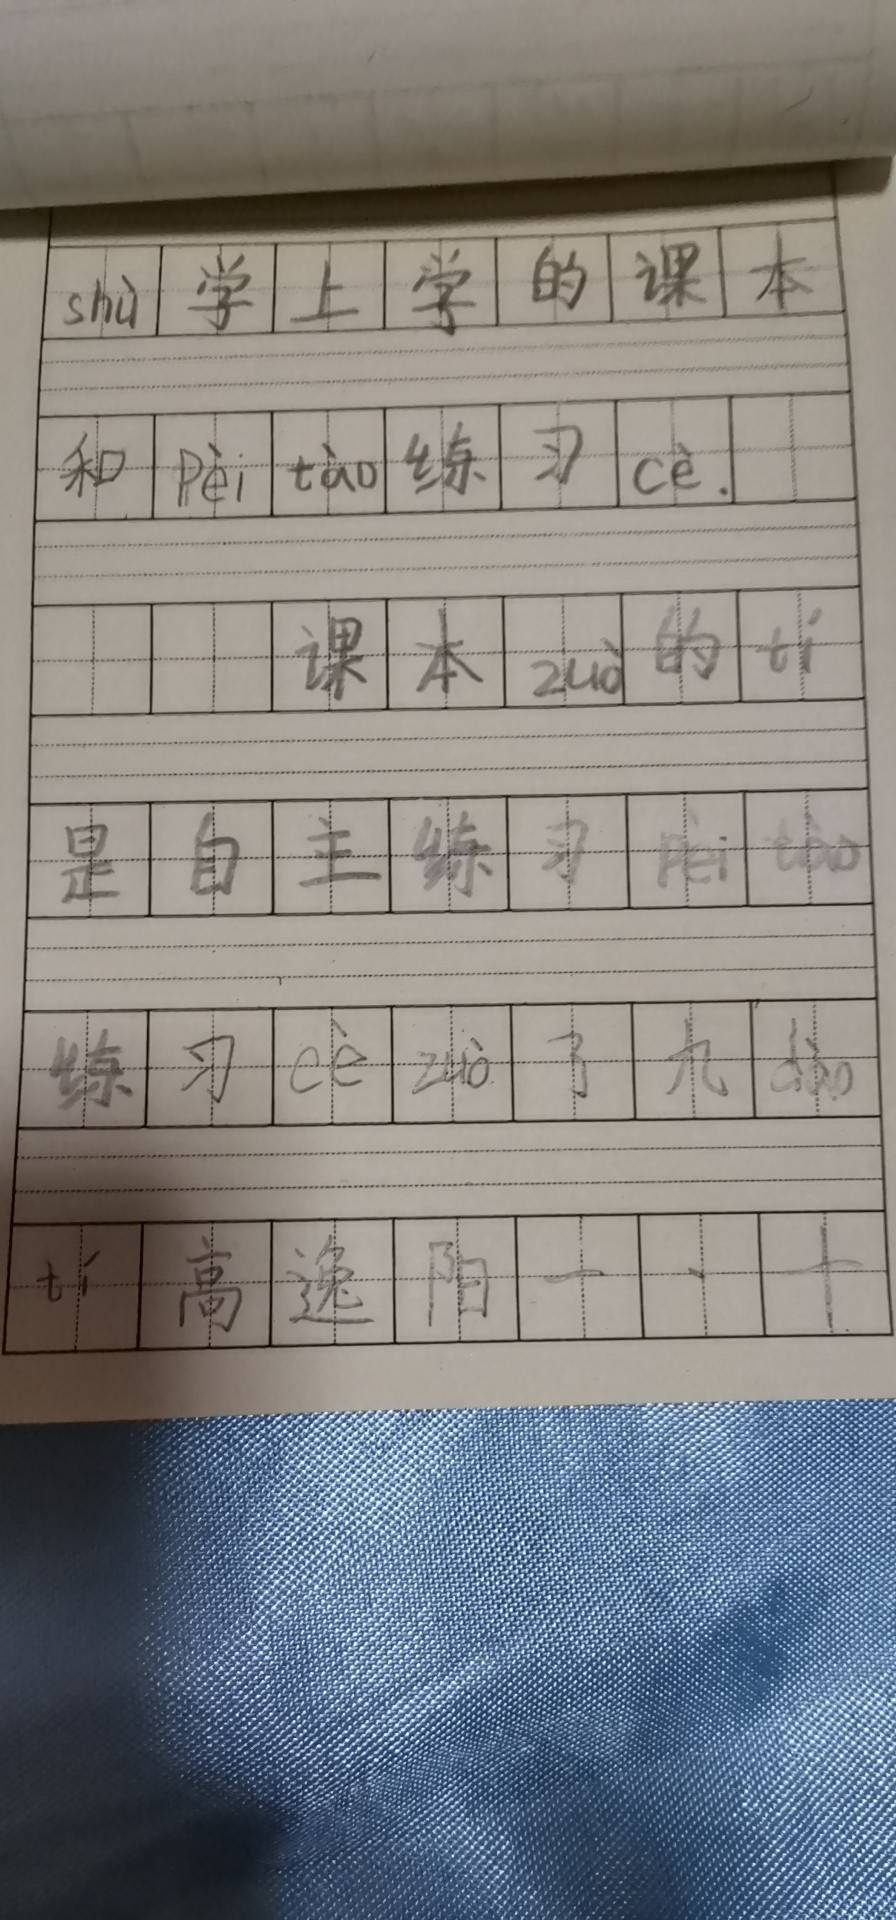 shù学上学的课本
和pèitào练习cè.
课本zuò的tí
是自主练习pèitào
练习cèzuò了九dào
tí高逸阳一、十